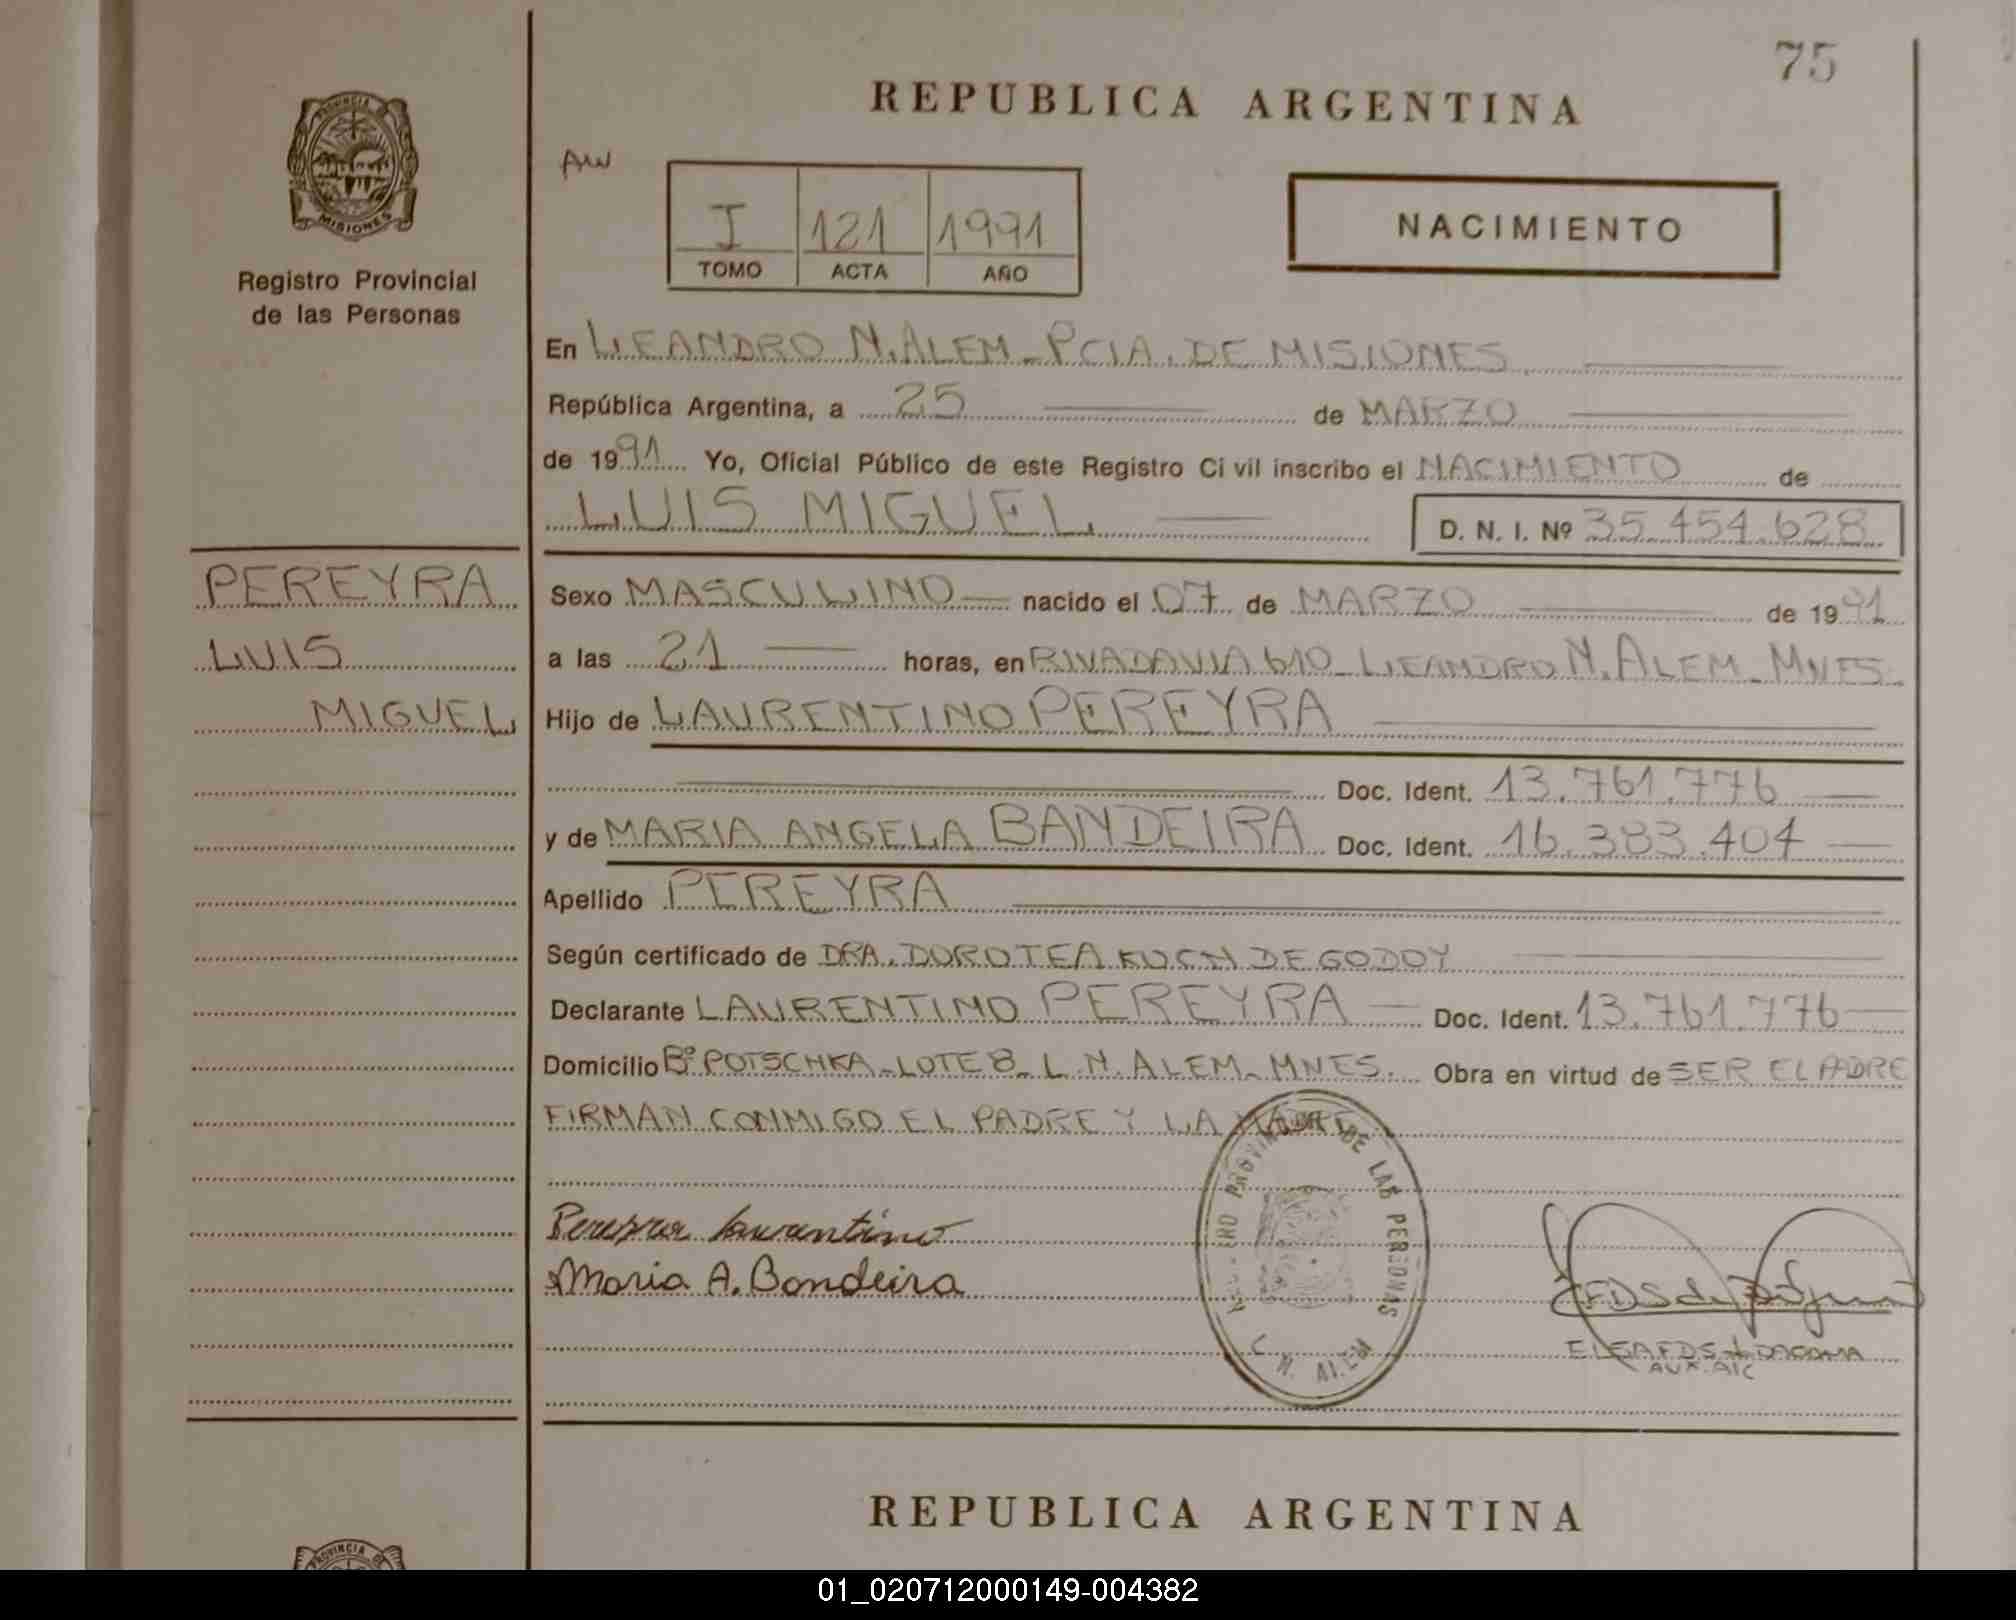 75
REPUBLICA ARGENTINA
PROVINCIA
MISIONES
Registro Provincial
de las Personas
AW
I 121 1991
TOMO ACTA AÑO
NACIMIENTO
En LEANDRO N. ALEM - PCIA. DE MISIONES
República Argentina, a 25 de MARZO
de 1991 Yo, Oficial Público de este Registro Civil inscribo el NACIMIENTO de
LUIS MIGUEL D. N. I. Nº 35.454.628
PEREYRA
LUIS
MIGUEL
Sexo MASCULINO nacido el 07 de MARZO de 1991
a las 21 horas, en RIVADAVIA 610 - LEANDRO N. ALEM - MNES.
Hijo de LAURENTINO PEREYRA
Doc. Ident. 13.761.776
y de MARIA ANGELA BANDEIRA Doc. Ident. 16.383.404
Apellido PEREYRA
Según certificado de DRA. DOROTEA DE GODOY
Declarante LAURENTINO PEREYRA Doc. Ident. 13.761.776
Domicilio Bº POTSCHKA - LOTE 8 - L. N. ALEM - MNES. Obra en virtud de SER EL PADRE
FIRMAN CONMIGO EL PADRE Y LA MADRE.
Pereyra Laurentino
Maria A. Bandeira
DE LAS PERSONAS
L. N. ALEM
AUX.
REPUBLICA ARGENTINA
PROVINCIA DE
01_020712000149-004382